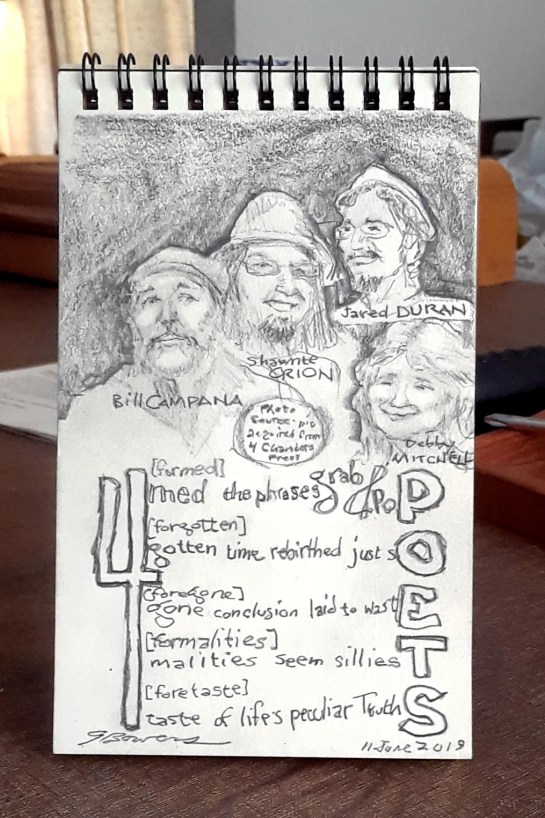 Jared DURAN
Shawnte
ORION
Bill CAMPANA
Photo
Source: pic
acquired from
4 Chambers
Press
Debby
MITCHELL
4 POETS
[formed]
med the phrases grab & Po
[forgotten]
gotten time rebirthed just s
[foregone]
gone conclusion laid to wast
[formalities]
malities seem sillies
[foretaste]
taste of life's peculiar Truth
G Bowers
11 June 2019